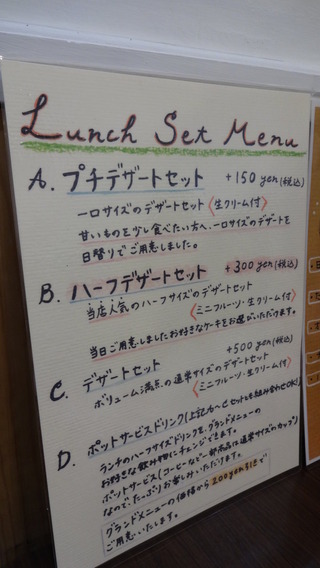 Lunch Set Menu
A. プチデザートセット +150 yen(税込)
一口サイズのデザートセット〈生クリーム付〉
甘いものを少し食べたい方へ、一口サイズのデザートを
日替りでご用意しました。
B. ハーフデザートセット +300 yen(税込)
当店人気のハーフサイズのデザートセット
〈ミニフルーツ・生クリーム付〉
当日ご用意しましたお好きなケーキをお選びいただけます。
C. デザートセット +500 yen(税込)
ボリューム満点の通常サイズのデザートセット
〈ミニフルーツ・生クリーム付〉
D. ポットサービスドリンク(上記A〜Cセットとも組み合わせOK)
ランチのハーフサイズドリンクを、グランドメニューの
お好きな飲み物にチェンジできます。
ポットサービス(コーヒーなど一部商品は通常サイズのカップ)
なので、たっぷりお楽しみいただけます。
グランドメニューの価格から200yen引きで
ご用意いたします。